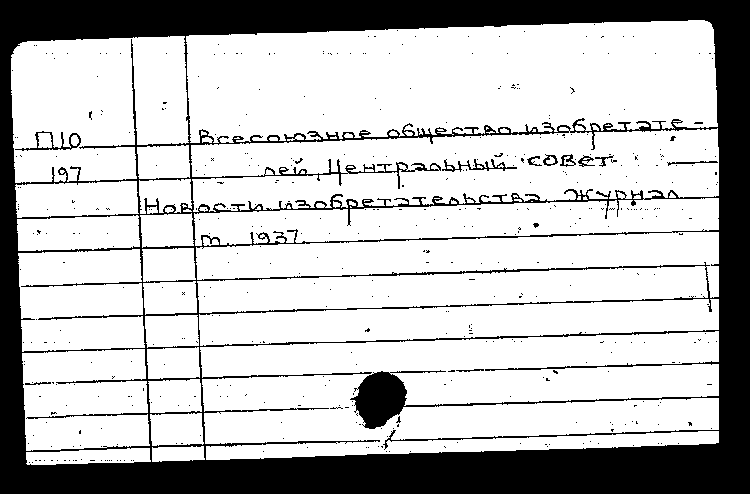 П10 Всесоюзное общество изобретате-
197 лей. Центральный совет
Новости изобретательства. Журнал
т. 1937.